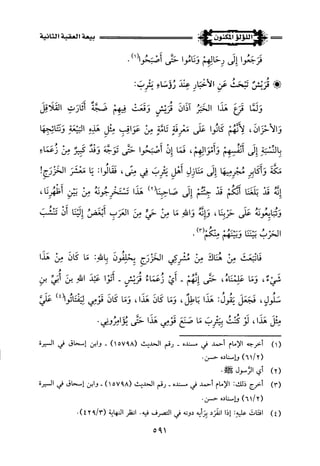 اللؤلؤ المكنون
بيعة العقبة الثانية
فَرَجَعُوا إِلَى رِحَالِهِمْ وَنَامُوا حَتَّى أَصْبَحُوا(١).
* قُرَيْشٌ تَبْحَثُ عَنِ الأَخْبَارِ عِنْدَ رُؤَسَاءِ يَثْرِبَ:
وَلَمَّا قَرَعَ هَذَا الخَبَرُ آذَانَ قُرَيْشٍ وَقَعَتْ فِيهِمْ ضَجَّةٌ أَثَارَتِ القَلَاقِلَ
وَالأَحْزَانَ، لِأَنَّهُمْ كَانُوا عَلَى مَعْرِفَةٍ تَامَّةٍ مِنْ عَوَاقِبِ مِثْلِ هَذِهِ البَيْعَةِ وَنَتَائِجِهَا
بِالنِّسْبَةِ إِلَى أَنْفُسِهِمْ وَأَمْوَالِهِمْ، فَمَا إِنْ أَصْبَحُوا حَتَّى تَوَجَّهَ وَفْدٌ كَبِيرٌ مِنْ زُعَمَاءِ
مَكَّةَ وَأَكَابِرِ مُجْرِمِيهَا إِلَى مَنَازِلِ أَهْلِ يَثْرِبَ فِي مِنًى، فَقَالُوا: يَا مَعْشَرَ الخَزْرَجِ!
إِنَّهُ قَدْ بَلَغَنَا أَنَّكُمْ قَدْ جِئْتُمْ إِلَى صَاحِبِنَا(٢) هَذَا تَسْتَخْرِجُونَهُ مِنْ بَيْنِ أَظْهُرِنَا،
وَتُبَايِعُونَهُ عَلَى حَرْبِنَا، وَإِنَّهُ وَاللهِ مَا مِنْ حَيٍّ مِنَ العَرَبِ أَبْغَضُ إِلَيْنَا أَنْ تَنْشَبَ
الحَرْبُ بَيْنَنَا وَبَيْنَهُمْ مِنْكُمْ(٣).
فَانْبَعَثَ مَنْ هُنَاكَ مِنْ مُشْرِكِي الخَزْرَجِ يَحْلِفُونَ بِاللهِ: مَا كَانَ مِنْ هَذَا
شَيْءٌ، وَمَا عَلِمْنَاهُ، حَتَّى إِنَّهُمْ - أَيْ زُعَمَاءُ قُرَيْشٍ - أَتَوْا عَبْدَ اللهِ بنَ أُبَيٍّ بنِ
سَلُولٍ، فَجَعَلَ يَقُولُ: هَذَا بَاطِلٌ، وَمَا كَانَ هَذَا، وَمَا كَانَ قَوْمِي لِيَفْتَاتُوا(٤) عَلَيَّ
مِثْلَ هَذَا، لَوْ كُنْتُ بِيَثْرِبَ مَا صَنَعَ قَوْمِي هَذَا حَتَّى يُؤَامِرُونِي.
(١) أخرجه الإمام أحمد في مسنده - رقم الحديث (١٥٧٩٨) - وابن إسحاق في السيرة
(٦١/٢) وإسناده حسن.
(٢) أي الرسول ﷺ.
(٣) أخرج ذلك: الإمام أحمد في مسنده - رقم الحديث (١٥٧٩٨) - وابن إسحاق في السيرة
(٦١/٢) وإسناده حسن.
(٤) افتَاتَ عليه: إذا انفَرَد برَأيه دونه في التصرف فيه. انظر النهاية (٤٢٩/٣).
٥٩١